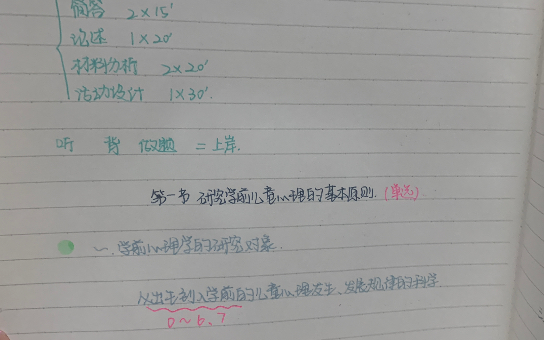 简答 2×15'
论述 1×20'
材料分析 2×20'
活动设计 1×30'.
听 背 做题 = 上岸.
第一节 研究学前儿童心理的基本原则. (单选)
一、学前心理学的研究对象.
从出生到入学前的儿童心理发生、发展规律的科学
0~6、7